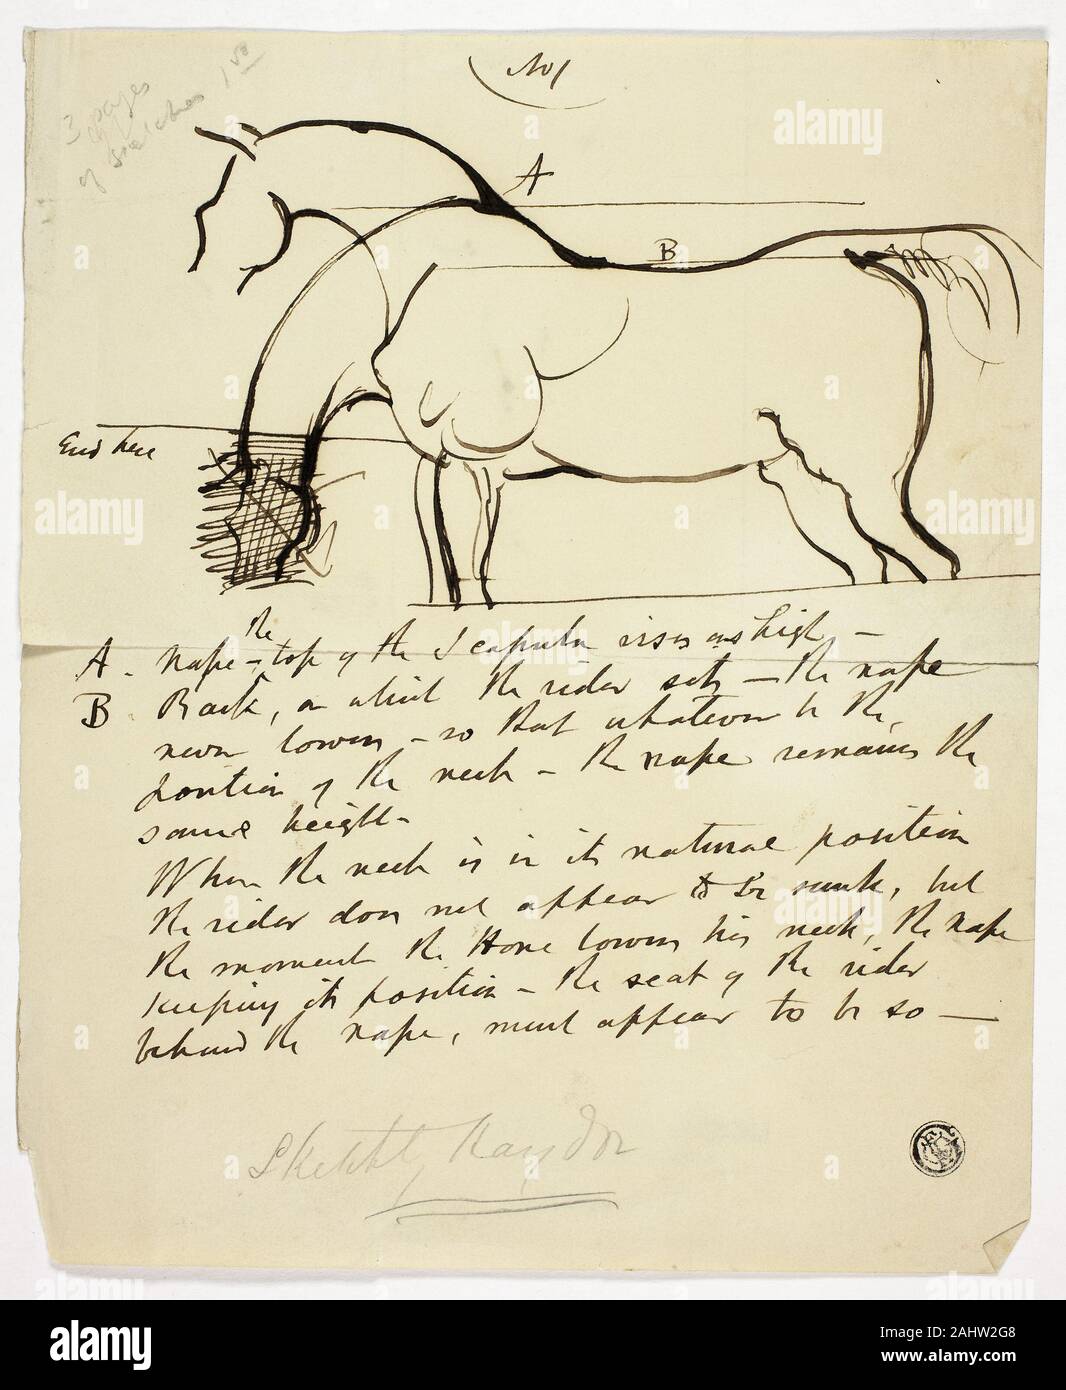 No 1
3 pages
of sketches 1
A
B
End here
the
A. Nape - top of the Scapula rises as high -
B. Back, on which the rider sets - the nape
never lowers - so that whatever be the
position of the neck - the nape remains the
same height -
When the neck is in its natural position
the rider does not appear to be sunk, but
the moment the Horse lowers his neck, the nape
keeping its position - the seat of the rider
behind the nape, must appear to be so -
Sketch by Haydon
alamy
Image ID: 2AHW2G8
www.alamy.com